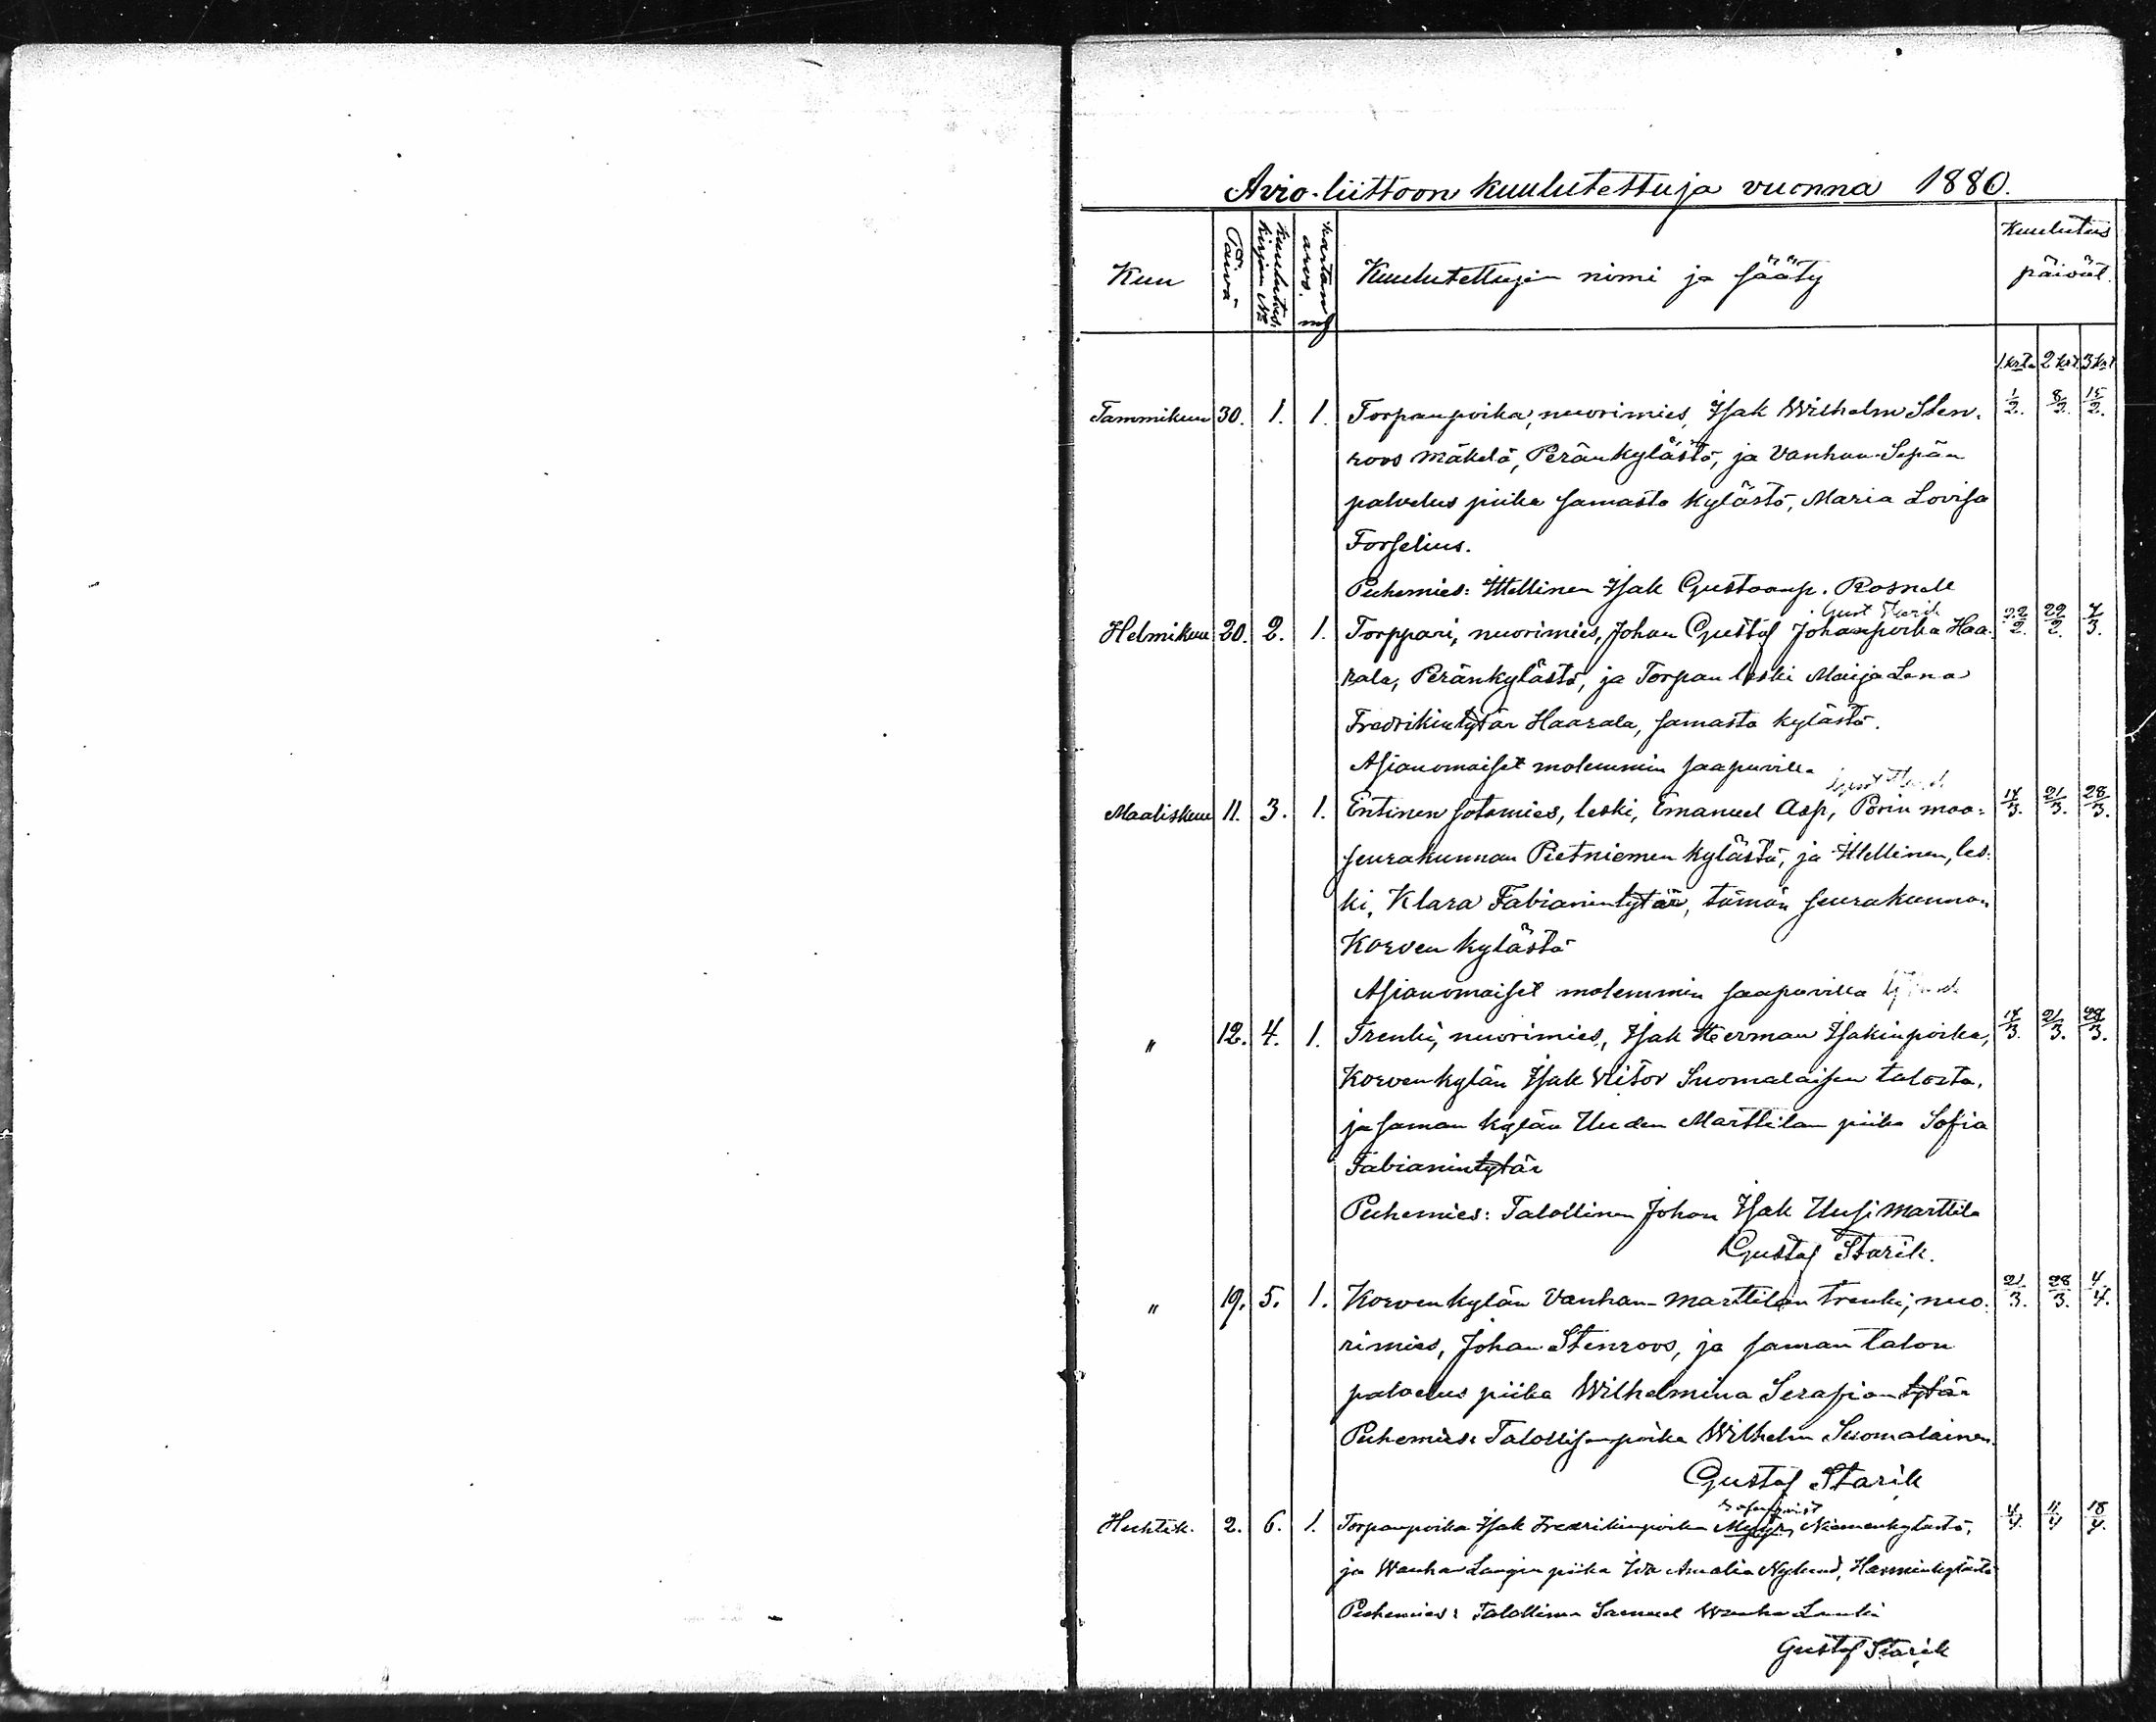 Avio-liittoon kuulutettuja vuonna 1880.
Kuu Päivä Kuulutus kirjan No Kartan arvo. mk Kuulutettujen nimi ja sääty Kuulutus päivät.
1 krta 2 krt. 3 krt
Tammikuu 30. 1. 1. Torpanpoika, nuorimies, Isak Wilhelm Sten- 1/2. 8/2. 15/2.
roos Mäkelä, Peränkylästä, ja Vanhan-Sepän
palvelus piika samasta kylästä, Maria Lovisa
Forselius.
Puhemies: Itsellinen Isak Gustaanp. Rosnell
Gust Starik
Helmikuu 20. 2. 1. Torppari, nuorimies, Johan Gustaf Johanpoika Haa- 22/2. 29/2. 7/3.
rala, Peränkylästä, ja Torpan leski Maija Lena
Fredrikintytär Haarala, samasta kylästä.
Asianomaiset molemmin saapuvilla
Maaliskuu 11. 3. 1. Entinen sotamies, leski, Emanuel Asp, Porin maa- 14/3. 21/3. 28/3.
seurakunnan Pietniemen kylästä, ja Itsellinen, les-
ki, Klara Fabianintytär, tämän seurakunnan
Korven kylästä
Asianomaiset molemmin saapuvilla
" 12. 4. 1. Trenki, nuorimies, Isak Herman Isakinpoika, 14/3. 21/3. 28/3.
Korvenkylän Isak Vitor Suomalaisen talosta,
ja saman kylän Uuden Marttilan piika Sofia
Fabianintytär
Puhemies: Talollinen Johan Isak Uusi Marttila
Gustaf Starik.
" 19. 5. 1. Korvenkylän Vanhan-Marttilan trenki, nuo- 21/3. 28/3. 4/4.
rimies, Johan Stenroos, ja saman talon
palvelus piika Wilhelmina Serafiantytär
Puhemies: Talollisenpoika Wilhelm Suomalainen.
Gustaf Starik
Huhtik. 2. 6. 1. Torpanpoika Isak Fredrikinpoika Niemenkylästä, 4/4. 11/4 18/4.
ja Wanhan Langin piika Ida Amalia Nylund, Harminkylästä
Puhemies: Talollinen Samuel Wanha Lanki
Gustaf Starik